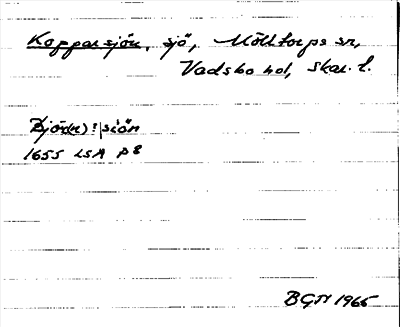 Kopparsjön, sjö, Mölltorps sn,
Vadsbo hd, Skar. l.
Björ(n)?siön
1655 LSA P8
BGM 1965